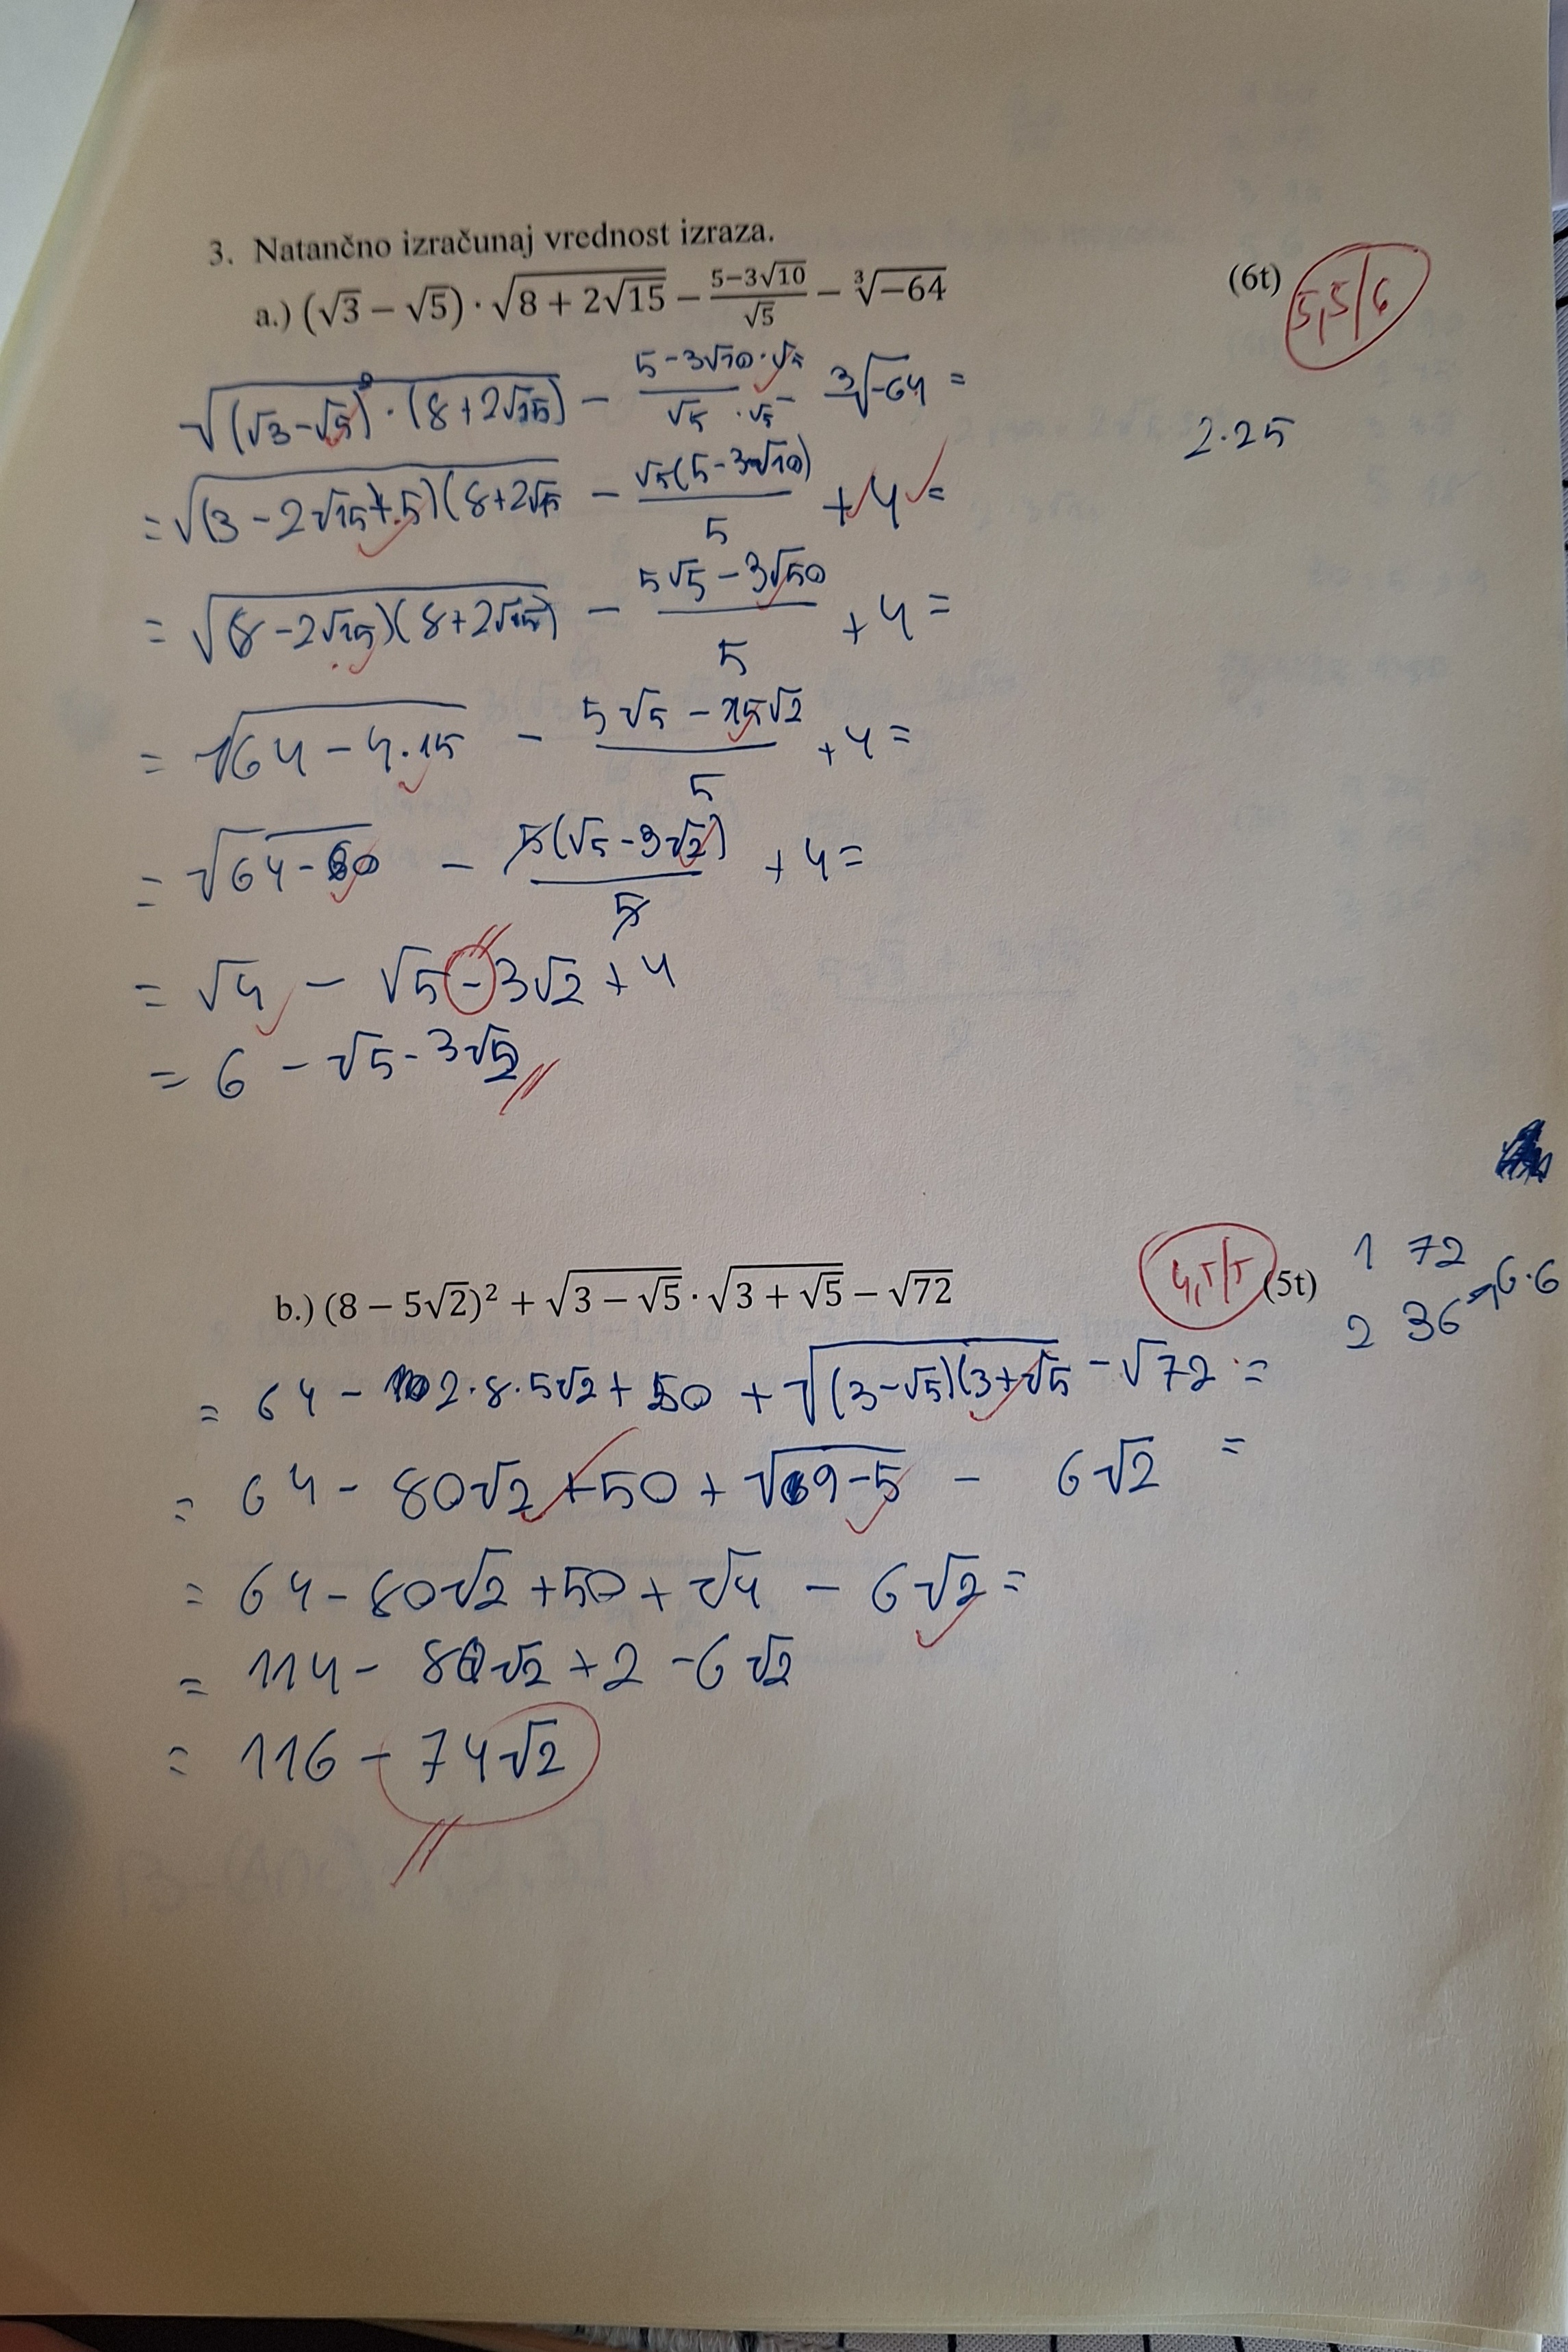 3. Natančno izračunaj vrednost izraza.
a.) (√3 − √5) · √(8 + 2√15) − (5−3√10)/√5 − ∛(−64) (6t) 5,5/6
√((√3−√5)² · (8+2√15)) − (5−3√10 · √5)/(√5 · √5) − ∛−64 =
2·25
= √((3 − 2√15 + 5)(8+2√15) − √5(5−3√10)/5 + 4 =
= √((8 − 2√15)(8+2√15)) − (5√5 − 3√50)/5 + 4 =
= √(64 − 4·15) − (5√5 − 15√2)/5 + 4 =
= √(64−60) − 5(√5 − 3√2)/5 + 4 =
= √4 − √5 − 3√2 + 4
= 6 − √5 − 3√2
b.) (8 − 5√2)² + √(3 − √5) · √(3 + √5) − √72 4,5/5 (5t)
1 72
2 36 → 6·6
= 64 − 2·8·5√2 + 50 + √((3−√5)(3+√5) − √72 =
= 64 − 80√2 + 50 + √(9−5) − 6√2 =
= 64 − 80√2 + 50 + √4 − 6√2 =
= 114 − 80√2 + 2 − 6√2
= 116 − 74√2